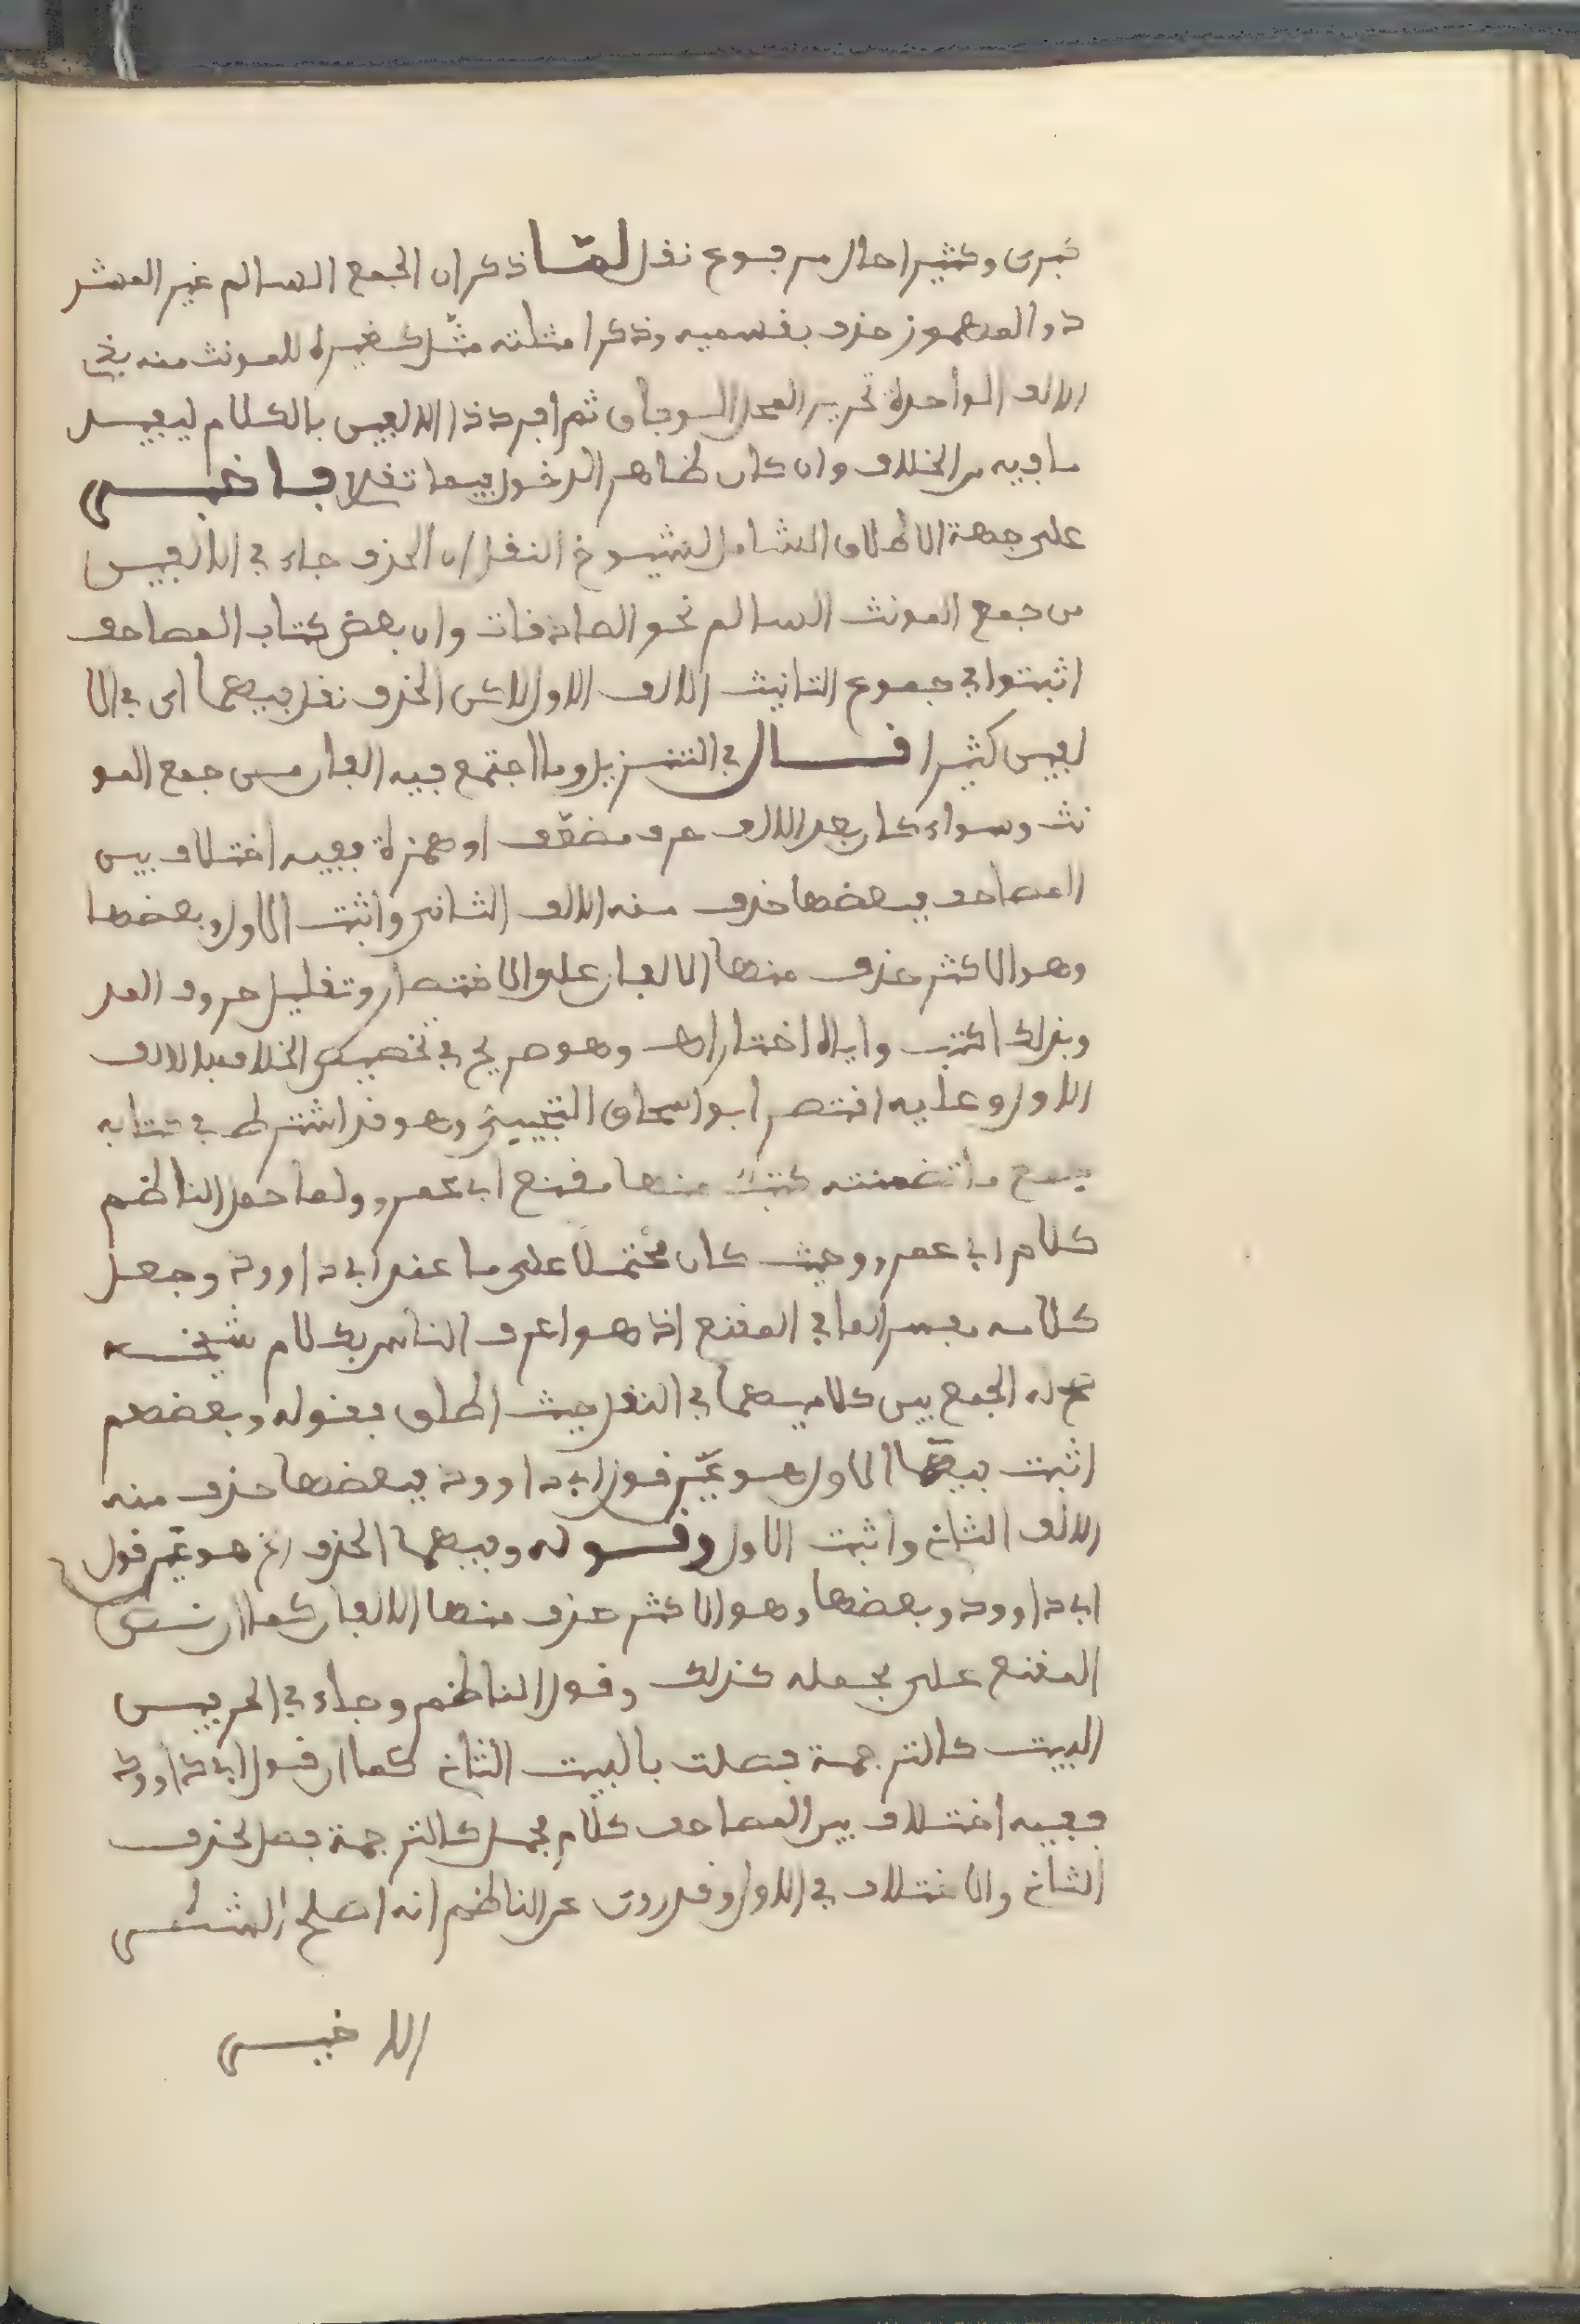 خبرى وكثيرا حال من مرفوع نقل لمّا ذكر ان الجمع السالم غير المشد
د والمهموز حذف بقسميه وذكر امثلته مثّل كغيره للمونث منه بذى
الالف الواحدة تحرير المحل الوفاق ثم افرد ذا الالفين بالكلام ليفيد
ما فيه من الخلاف وان كان ظاهر الدخول فيما تقدم فاخبـــر
على جهة الاطلاق الشامل لشيوخ النقل ان الحذف جاء في الالفين
من جمع المونث السالم نحو الصادقات وان بعض كتاب المصاحف
اثبتوا في جموع التانيث الالف الاول لاكن الحذف نقل فيهما اى في الا
لفين كثيرا قـــال في التنزيل وما اجتمع فيه الفان من جمع المو
نث وسواء كان بعد الالف حرف مضعّف او همزة ففيه اختلاف بين
المصاحف فبعضها حذف منه الالف الثانى واثبت الاول وبعضها
وهو الاكثر حذف منها الالفان على الاختصار وتقليل حروف المد
وبذلك اكتب واياه اختار اهـ وهو صريح في تخصيص الخلاف بالالف
الاول وعليه اقتصر ابو اسحاق التجيبي وهو قد اشترط في كتابه
جمع ما تضمنته كتب منها مقنع ابى عمرو ولما حمل الناظم
كلام ابى عمرو وحيث كان محتملا على ما عند ابى داوود وجعل
كلامه مفسرا لما في المقنع اذ هو اعرف الناس بكلام شيخـــه
صح له الجمع بين كلاميهما في النقل حيث اطلق فقوله وبعضهم
اثبت فيهما الاول هو عين قول ابى داوود فبعضها حذف منه
الالف الثاني واثبت الاول وقـــوله وفيهما الحذف الخ هو عين قول
ابى داوود وبعضها وهو الاكثر حذف منها الالفان كما ان نـــص
المقنع على مجمله كذلك وقول الناظم وجاء في الحرفيـــن
البيت كالترجمة فصلت بالبيت الثاني كما ان قول ابى داوود
ففيه اختلاف بين المصاحف كلام مجمل كالترجمة فصل بحذف
الثاني والاختلاف في الاول وقد روى عن الناظم انه اصلح الشطر
الاخيـــر